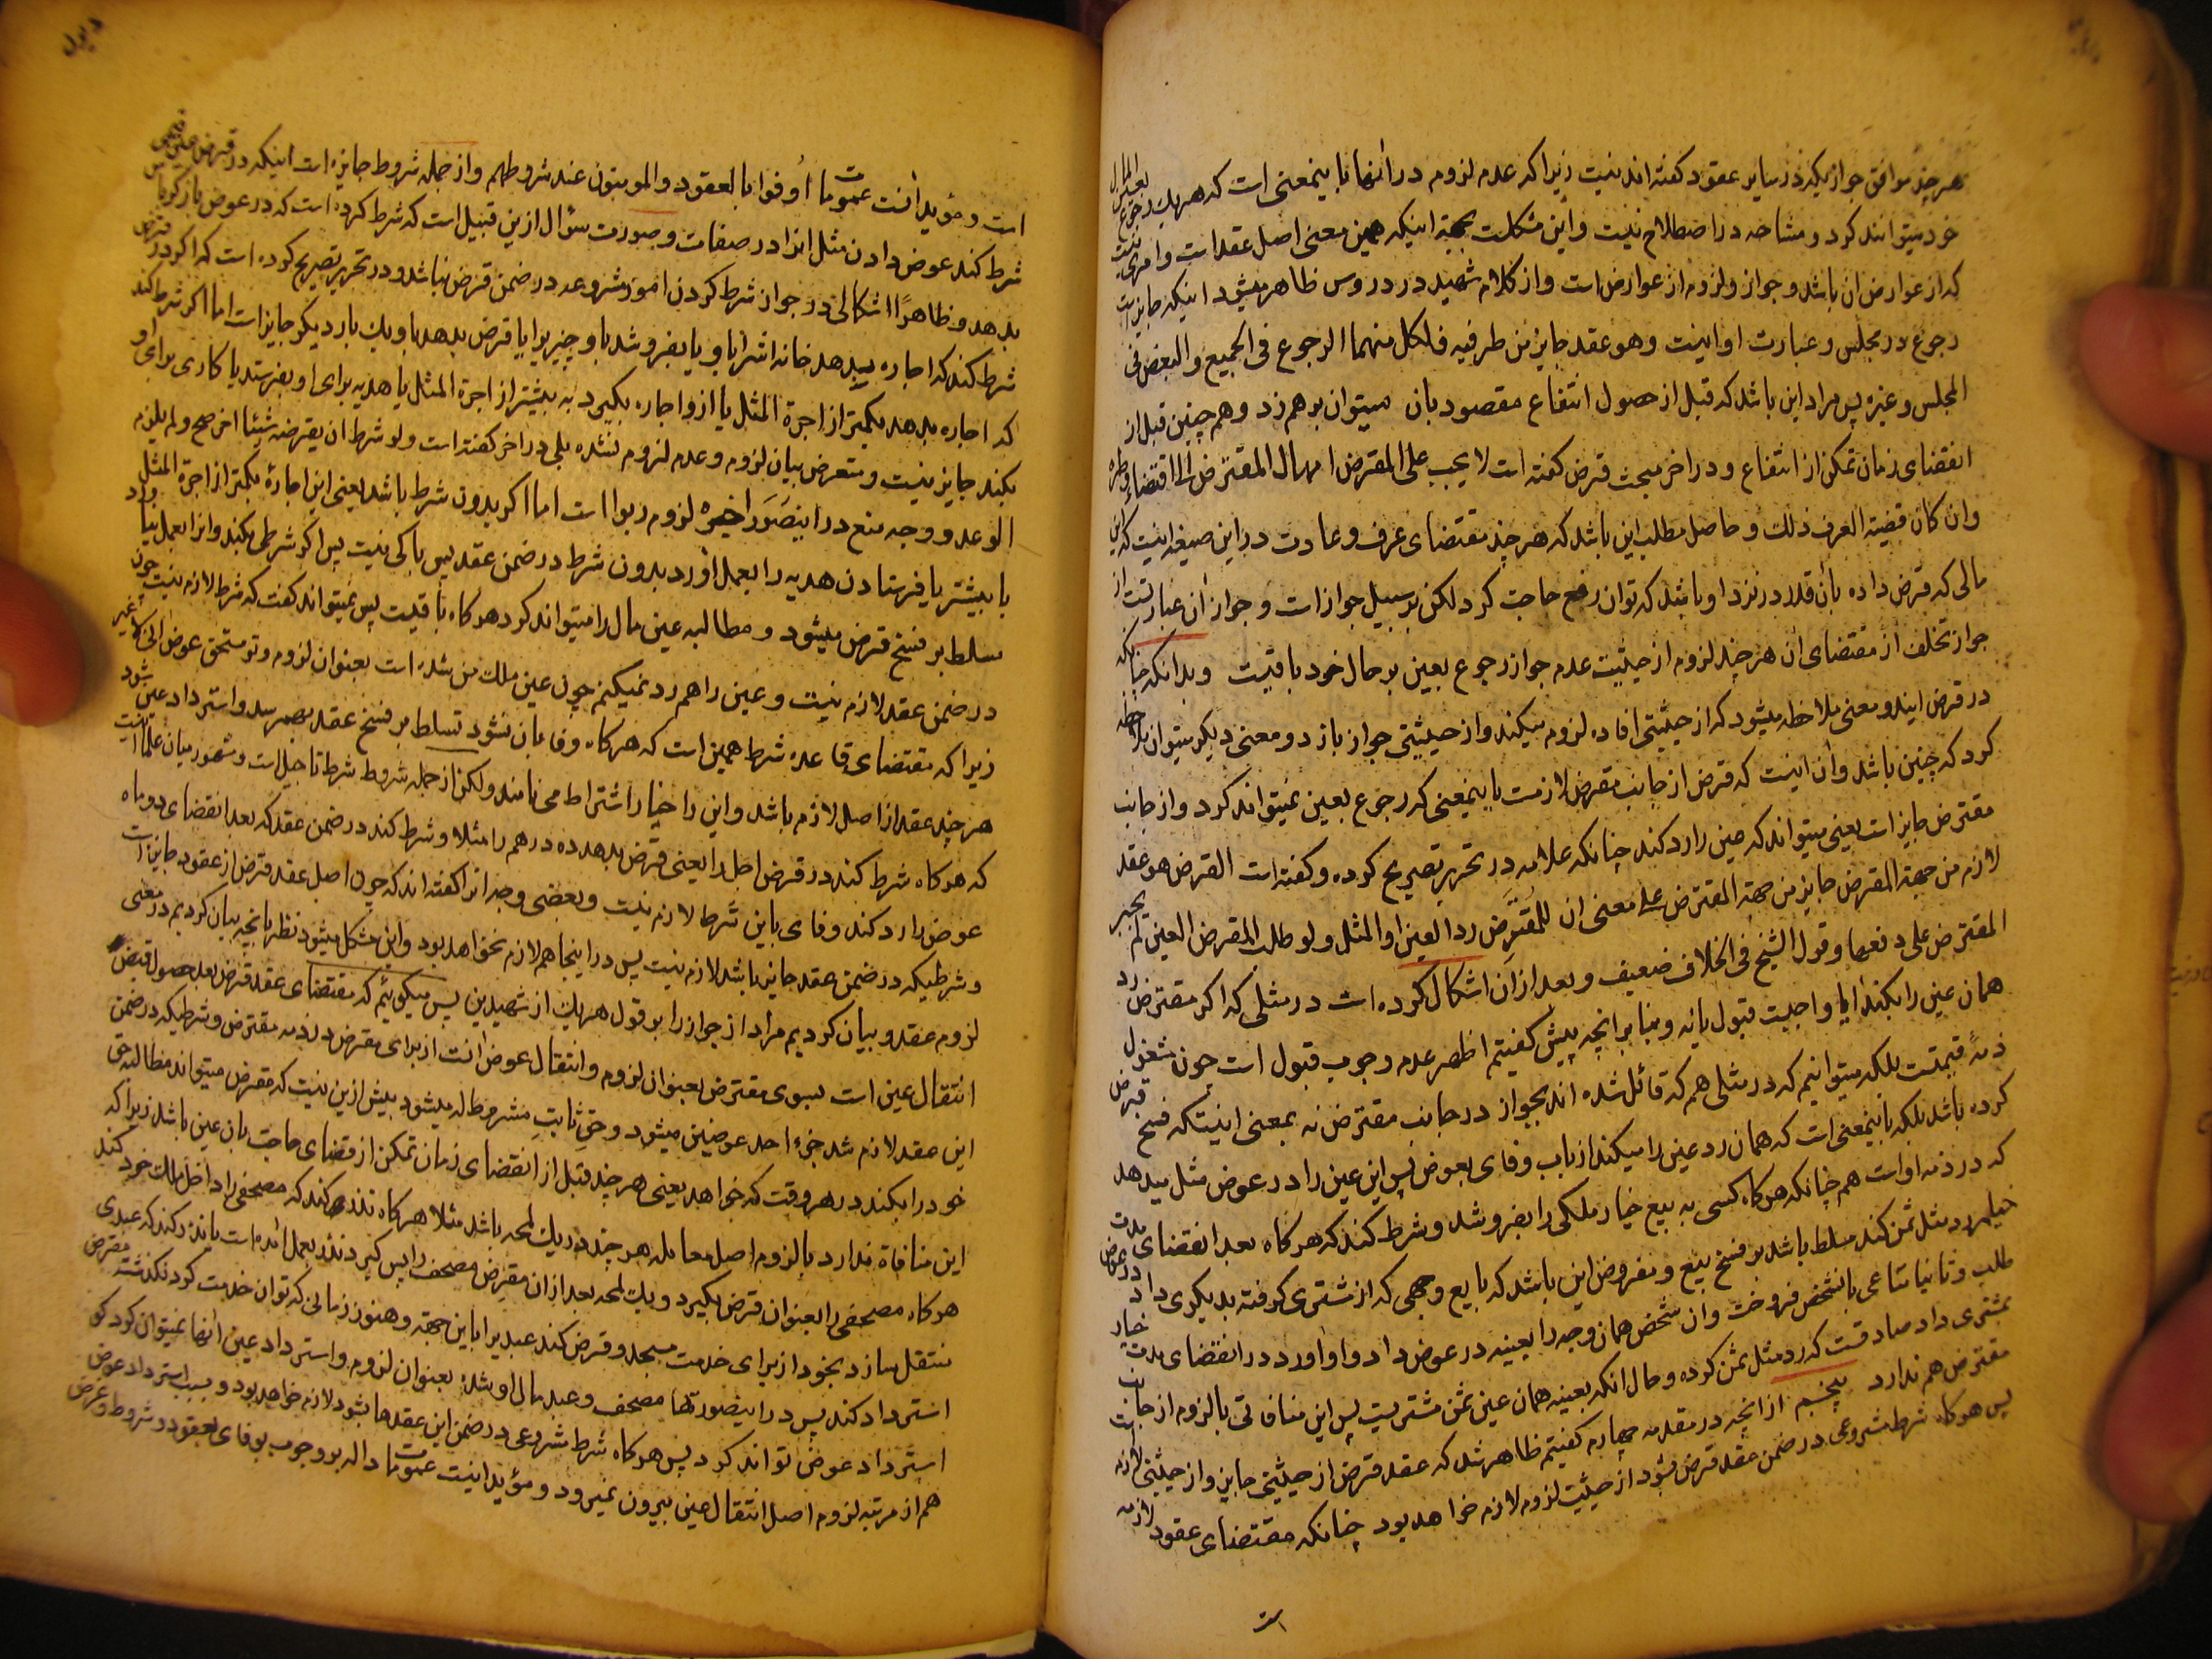 هر چند موافق جوازیکه در سایر عقود کفته اند نیست زیرا که عدم لزوم در انها باینمعنی است که هر یک رجوع بعین المال
خود میتوانند کرد و مشاحه در اصطلاح نیست و این مشکلست بجهة اینکه همین معنی اصل عقد است و امری نیست
که از عوارض ان باشد و جواز و لزوم از عوارض است و از کلام شهید در دروس ظاهر میشود اینکه جایز است
رجوع در مجلس و عبارت او اینست وهو عقد جایز من طرفیه فلکل منهما الرجوع فی الجمیع والبعض فی
المجلس وغیره پس مراد این باشد که قبل از حصول انتفاع مقصود بان میتوان بر هم زد و هم چنین قبل از
انقضای زمان تمکن از انتفاع و در اخر مبحث قرض کفته است لا یجب علی المقرض امهال المقترض الی اقتضاء وطره
وان کان قضیة العرف ذلک و حاصل مطلب این باشد که هر چند مقتضای عرف و عادت در این صیغه اینست که این
مالی که قرض داده بان قلا در نزد او باشد که توان رفع حاجت کرد لکن بر سبیل جواز است و جواز ان عبارتست از
جواز تخلف از مقتضای ان هر چند لزوم از حیثیت عدم جواز رجوع بعین بر حال خود باقیست و بدانکه چنانکه
در قرض ایندو معنی ملاحظه میشود که از حیثیتی افاده لزوم میکند و از حیثیتی جواز باز دو معنی دیکر میتوان ملاحظه
کرد که چنین باشد و ان اینست که قرض از جانب مقرض لازمست باینمعنی که رجوع بعین نمیتواند کرد و از جانب
مقترض جایز است یعنی میتواند که عین را رد کند چنانکه علامه در تحریر تصریح کرده و کفته است القرض هو عقد
لازم من جهة المقرض جایز من جهة المقترض علی معنی ان للمقترض رد العین او المثل ولو طلب المقرض العین لم یجبر
المقترض علی دفعها وقول الشیخ فی الخلاف ضعیف و بعد از ان اشکال کرده است در مثلی که اکر مقترض رد
همان عین را بکند ایا واجبست قبول یا نه و بنا بر انچه پیش کفتیم اظهر عدم وجوب قبول است چون مشغول
ذمه قیمتست بلکه میتوانیم که در مثلی هم که قائل شده اند بجواز در جانب مقترض نه بمعنی اینستکه فسخ قرض
کرده باشد بلکه باینمعنی است که همان رد عین را میکند از باب وفای بعوض پس این عین را در عوض مثل میدهد
که در ذمه او است هم چنانکه هر کاه کسی به بیع خیار ملکی را بفروشد و شرط کند که هر کاه بعد انقضای مدت
خیار رد مثل ثمن کند مسلط باشد بر فسخ بیع و مفروض این باشد که بایع وجهی که از مشتری کرفته بدیکری داد در عوض
طلب و ثانیا متاعی بانشخص فروخت و ان شخص همان وجه را بعینه در عوض داد و او اورد در انقضای مدت خیار
بمشتری داد صادقست که رد مثل ثمن کرده و حال انکه بعینه همان عین ثمن مشتریست پس این منافاتی با لزوم از جانب
مقترض هم ندارد پنجم از انچه در مقدمه چهارم کفتیم ظاهر شد که عقد قرض از حیثیتی جایز و از حیثیتی لازم است
پس هر کاه شرط مشروعی در ضمن عقد قرض بشود از حیثیت لزوم لازم خواهد بود چنانکه مقتضای عقود لازمه
است
است و مؤید انست عمومات أوفوا بالعقود والمومنون عند شروطهم و از جمله شروط جایزه است اینکه در قرض
شرط کند عوض دادن مثل انرا در صفات و صورت سؤال ازین قبیل است که شرط کرده است که در عوض باز
بدهد و ظاهرًا اشکالی در جواز شرط کردن امور مشروعه در ضمن قرض نباشد و در تحریر تصریح کرده است که اکر در قرض
شرط کند که اجاره بدهد خانه اش را باو یا بفروشد باو چیزیرا یا قرض بدهد باو یک بار دیکر جایز است اما اکر شرط کند
که اجاره بدهد بکمتر از اجرة المثل یا ازو اجاره بکیرد به بیشتر از اجرة المثل یا هدیه برای او بفرستد یا کاری برای او
بکند جایز نیست و متعرض بیان لزوم و عدم لزوم نشده بلی در اخر کفته است ولو شرط ان یقرضه شیئا اخر صح ولم یلزم
الوعد و وجه منع در اینصور اخیره لزوم ربوا است اما اکر بدون شرط باشد یعنی این اجارهٔ بکمتر از اجرة المثل
یا بیشتر یا فرستادن هدیه را بعمل اورد بدون شرط در ضمن عقد پس باکی نیست پس اکر شرطی بکند و انرا بعمل نیاورد
مسلط بر فسخ قرض میشود و مطالبه عین مال را میتواند کرد هر کاه باقیست پس نمیتواند کفت که شرط لازم نیست چون
در ضمن عقد لازم نیست و عین را هم رد نمیکنم چون عین ملک من شده است بعنوان لزوم و تو مستحق عوض
زیرا که مقتضای قاعده شرط همین است که هر کاه وفا بان نشود تسلط بر فسخ عقد بهمرسد و استرداد عین شود
هر چند عقد از اصل لازم باشد و این را خیار اشتراط می نامند ولکن از جمله شروط شرط تاجیل است و مشهور میان علما انست
که هر کاه شرط کند در قرض اجل را یعنی قرض بدهد ده درهم را مثلا و شرط کند در ضمن عقد که بعد انقضای دو ماه
عوض را رد کند وفای باین شرط لازم نیست و بعضی وجه انرا کفته اند که چون اصل عقد قرض از عقود جایز است
و شرطیکه در ضمن عقد جایز باشد لازم نیست پس در اینجا هم لازم نخواهد بود و این مشکل میشود نظر بانچه بیان کردیم در معنی
لزوم عقد و بیان کردیم مراد از جواز را بر قول هر یک از شهیدین پس میکوئیم که مقتضای عقد قرض بعد حصول قبض
انتقال عین است بسوی مقترض بعنوان لزوم و انتقال عوض انست از برای مقرض در ذمه مقترض و شرطیکه در ضمن
این عقد لازم شد جزء احد عوضین میشود و حق ثابت مشروط له میشود بیش ازین نیست که مقرض میتواند مطالبه حق
خود را بکند در هر وقت که خواهد یعنی هر چند قبل از انقضای زمان تمکن از قضای حاجت بان عین باشد زیرا که
این منافاة ندارد با لزوم اصل معامله هر چند در یک لمحه باشد مثلا هر کاه نذر کند که مصحفی را داخل ملک خود کند
هر کاه مصحفی را بعنوان قرض بکیرد و یک لمحه بعد از ان مقرض مصحف را پس کیرد نذر بعمل امده است یا نذر کند که عبدی
منتقل سازد بخود از برای خدمت مسجد و قرض کند عبدیرا باین جهة و هنوز زمانی که توان خدمت کرد نکذشته مقرض
استرداد کند پس در اینصورتها مصحف و عبد مال او شده بعنوان لزوم و استرداد عین انها نمیتوان کرد کو
استرداد عوض تواند کرد پس هر کاه شرط مشروعی در ضمن این عقدها بشود لازم خواهد بود و بسبب استرداد عوض
هم از مرتبه لزوم اصل انتقال عین بیرون نمیرود و مؤید اینست عمومات داله بر وجوب وفای بعقود و شروط